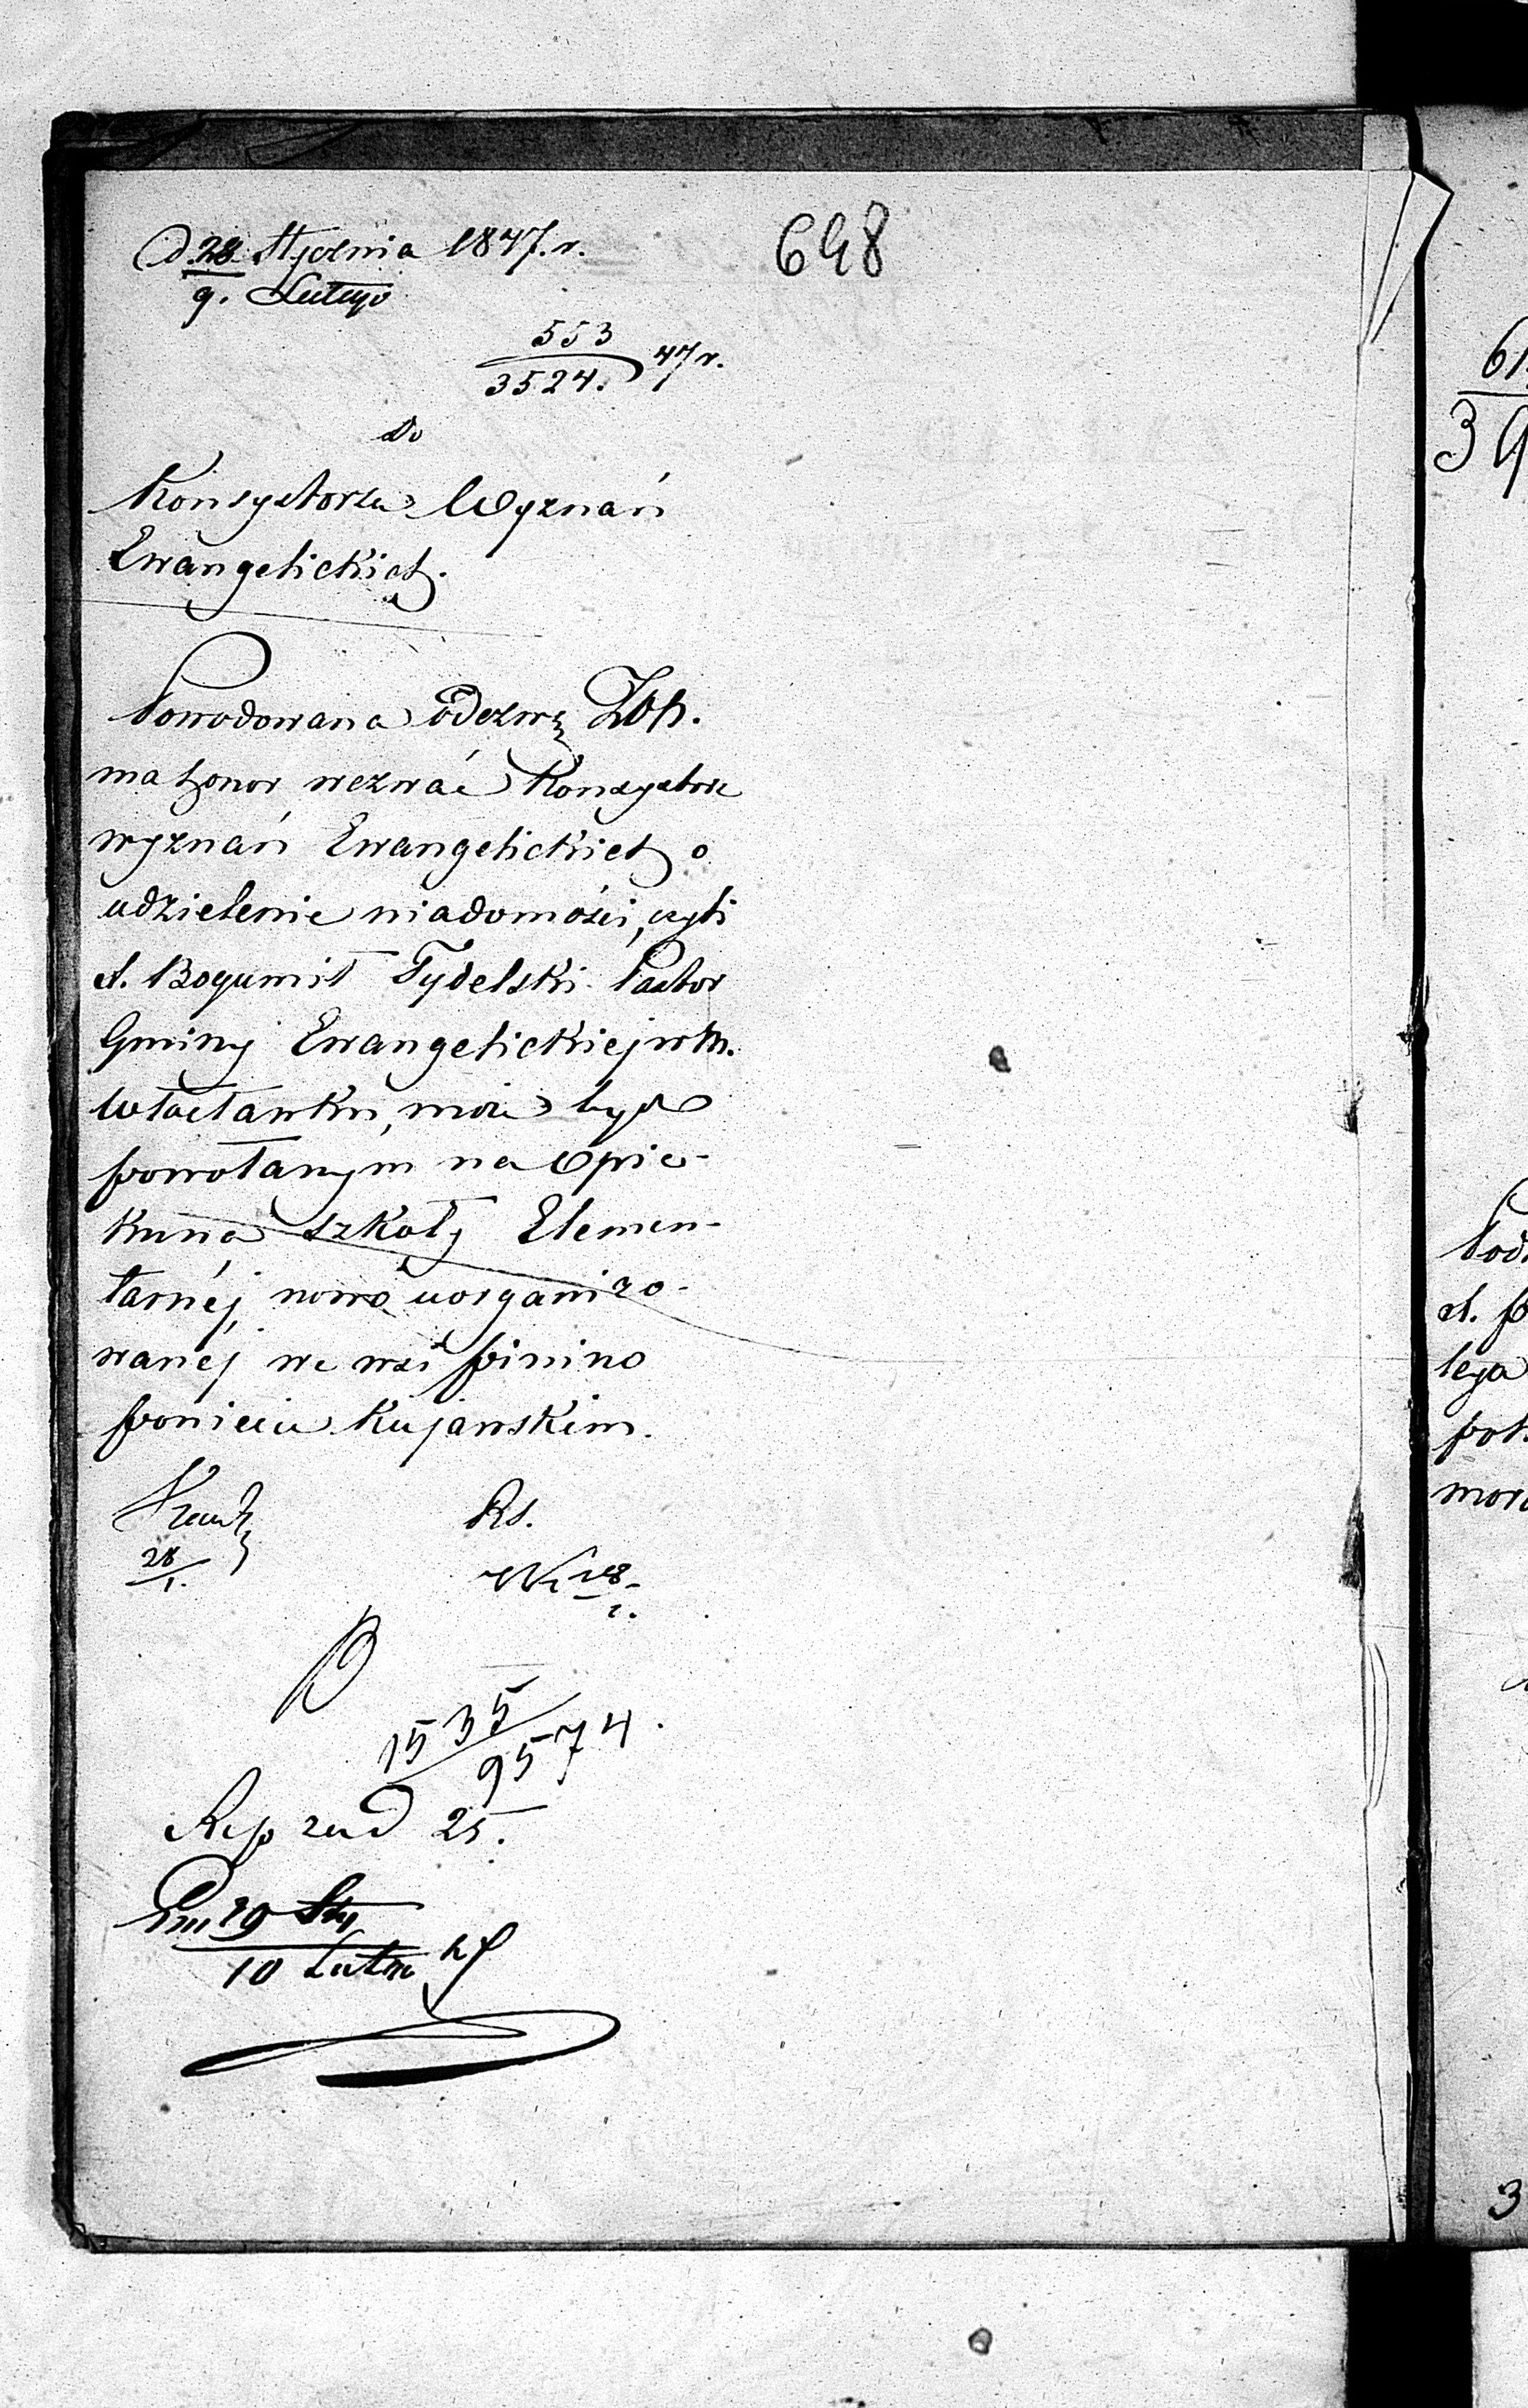 698
d. 28. Stycznia 1847. r.
9. Lutego
553
3524. 47 r.
Do
Konsystorza Wyznań
Ewangelickich.
Powodowana odezwą
ma honor wezwać Konsystorz
wyznań Ewangelickich o
udzielenie wiadomości, czyli
X. Bogumił Tydelski Pastor
Gminy Ewangelickiej w m.
Włocławku, może być
powołanym na Opie-
kuna szkoły Elemen-
tarnéj, nowo uorganizo-
wanej we wsi
powiecie Kujawskim.
28
1.
Rs.
1535
9574.
Rep 25.
29 Sty
10 Lutm 47
61
39
3